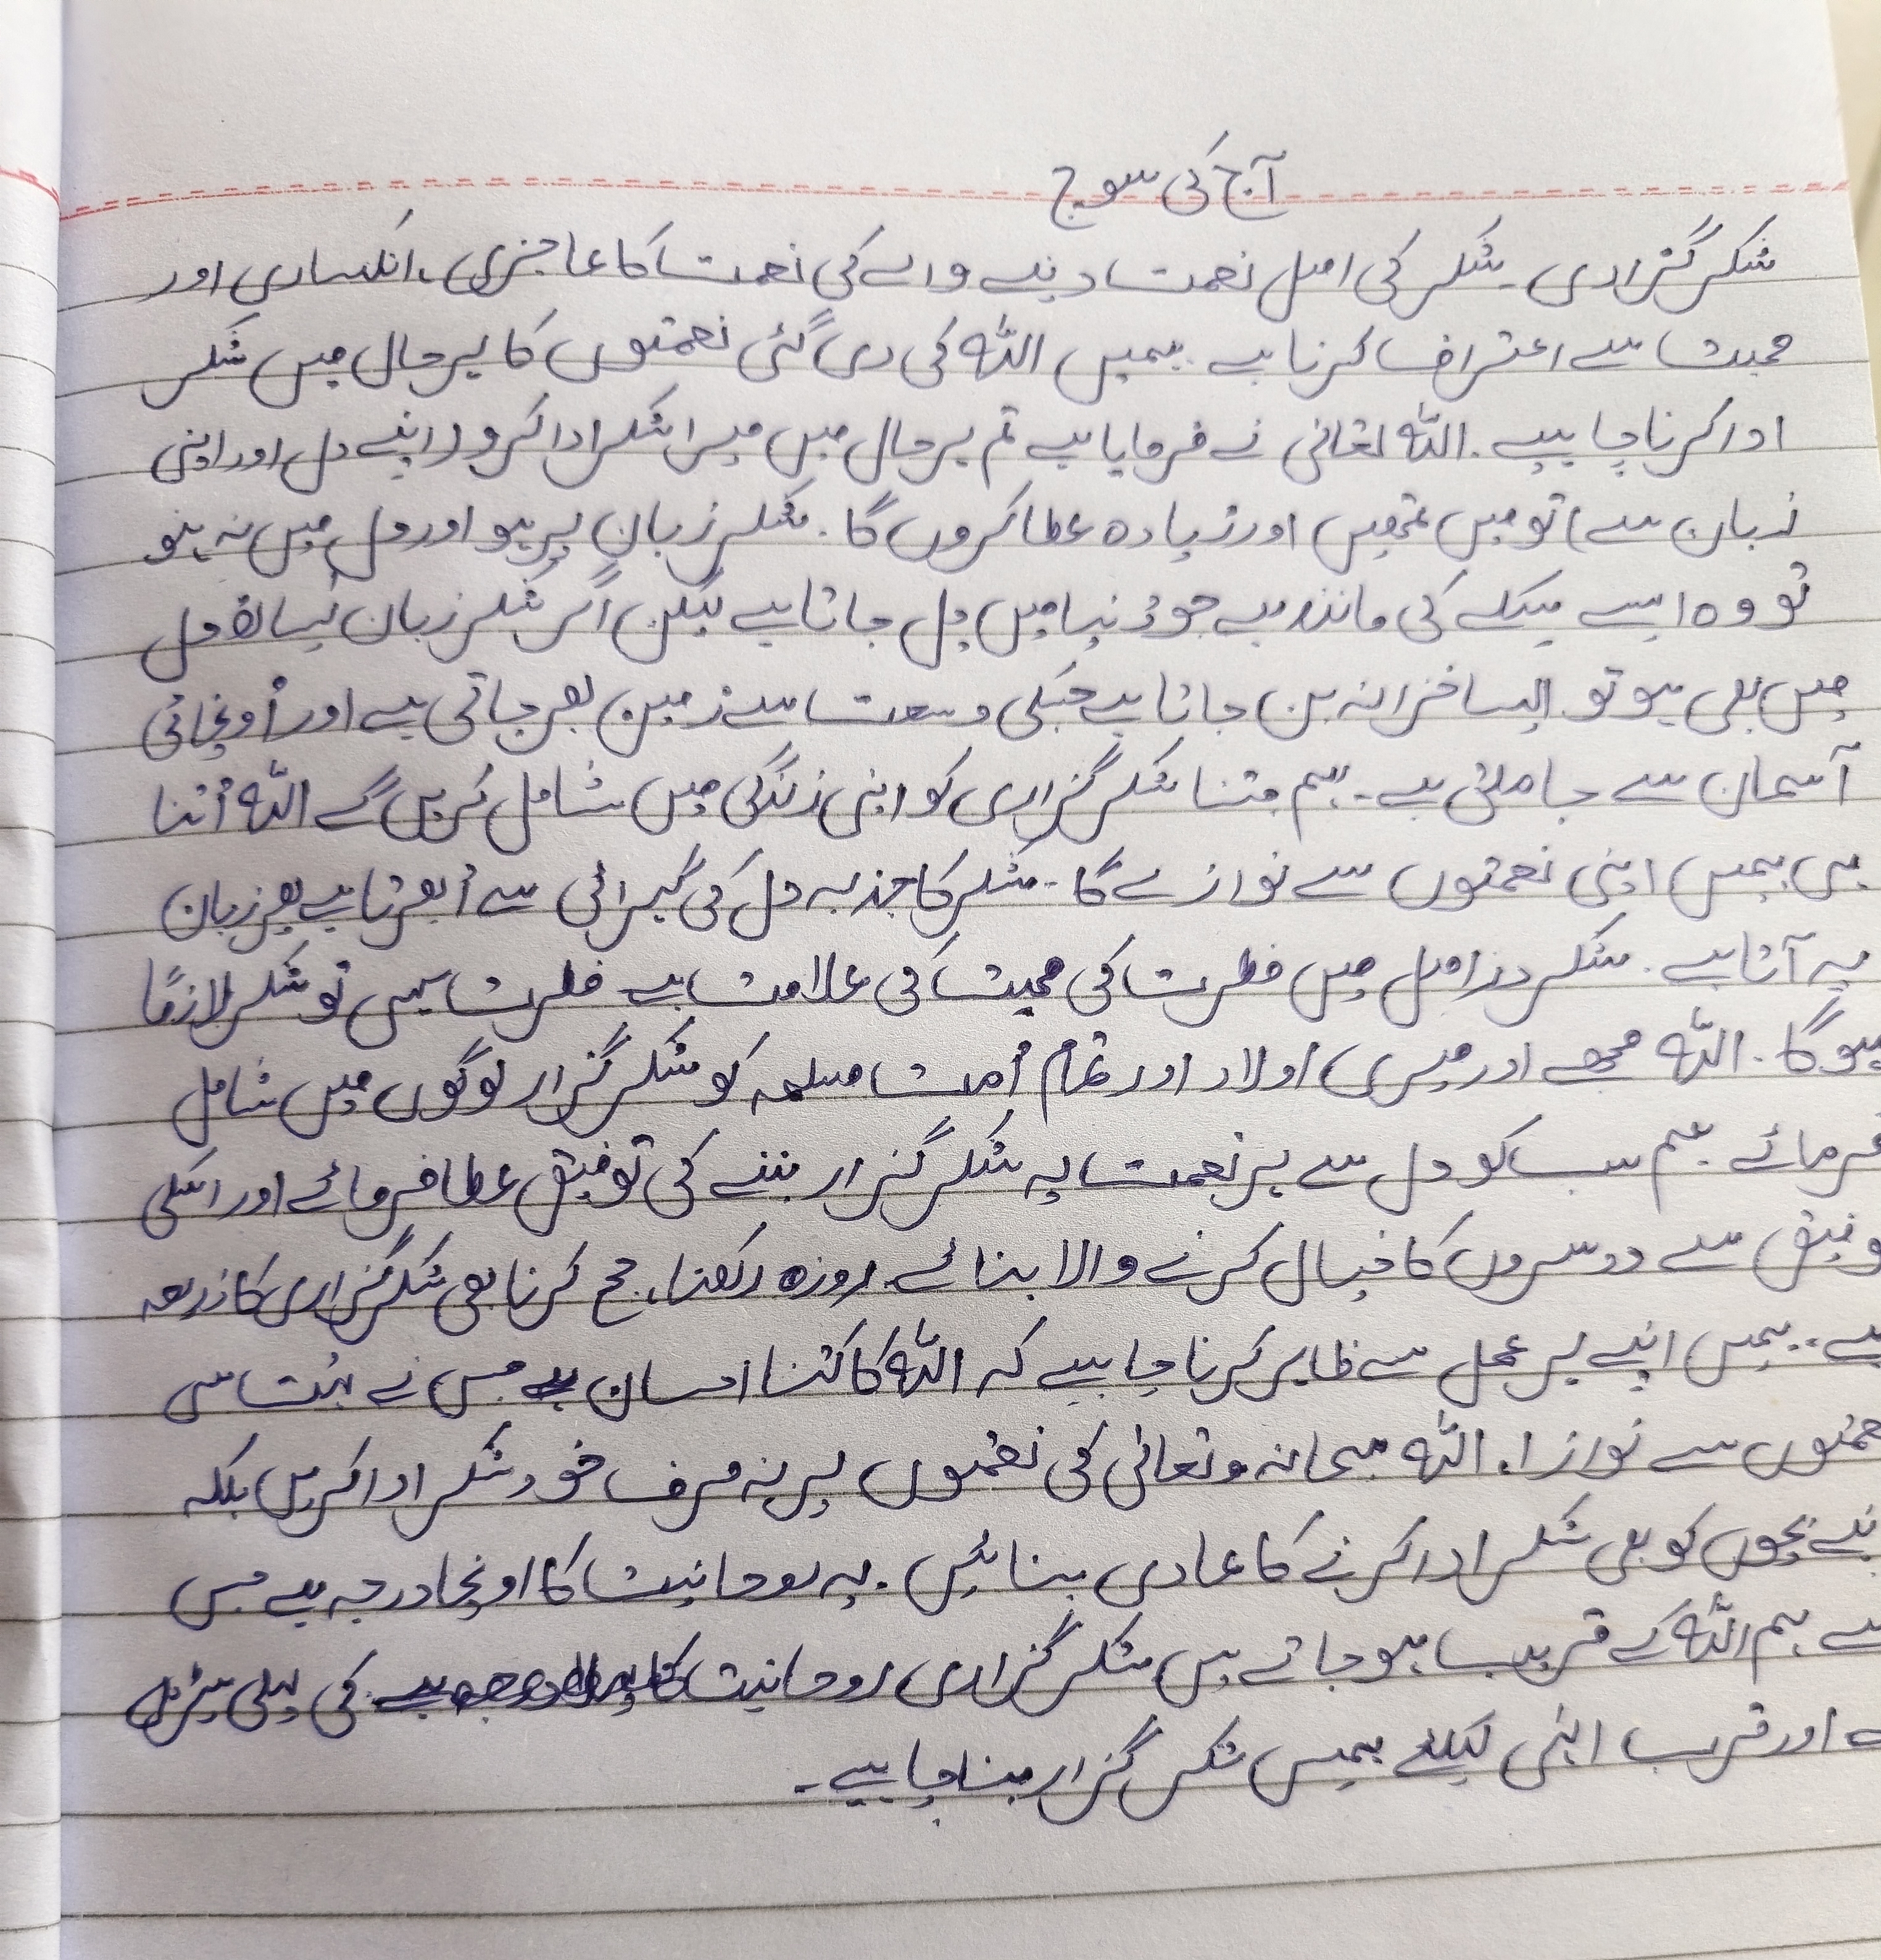 آج کی سوچ
شکر گزاری۔ شکر کی اصل نعمت دینے والے کی نعمت کا عاجزی، انکساری اور
محبت سے اعتراف کرنا ہے۔ ہمیں اللہ کی دی گئی نعمتوں کا ہر حال میں شکر
ادا کرنا چاہیے۔ اللہ تعالیٰ نے فرمایا ہے تم ہر حال میں میرا شکر ادا کرو (اپنے دل اور اپنی
زبان سے) تو میں تمہیں اور زیادہ عطا کروں گا۔ شکر زبان پر ہو اور دل میں نہ ہو
تو وہ ایسے سکے کی مانند ہے جو دُنیا میں چل جاتا ہے لیکن اگر شکر زبان کیساتھ دل
میں بھی ہو تو ایسا خزانہ بن جاتا ہے جسکی وسعت سے زمین بھر جاتی ہے اور اُونچائی
آسمان سے جا ملتی ہے۔ ہم جتنا شکر گزاری کو اپنی زندگی میں شامل کریں گے اللہ اُتنا
ہی ہمیں اپنی نعمتوں سے نوازے گا۔ شکر کا جذبہ دل کی گہرائی سے اُبھرتا ہے پھر زبان
پہ آتا ہے۔ شکر دراصل میں فطرت کی محبت کی علامت ہے فطرت سہی تو شکر لازمًا
ہوگا۔ اللہ مجھے اور میری اولاد اور تمام اُمت مسلمہ کو شکر گزار لوگوں میں شامل
فرمائے ہم سب کو دل سے ہر نعمت پہ شکر گزار بننے کی توفیق عطا فرمائے اور اسکی
وفیق سے دوسروں کا خیال کرنے والا بنائے۔ روزہ رکھنا، حج کرنا بھی شکر گزاری کا ذریعہ
ہے۔ ہمیں اپنے ہر عمل سے ظاہر کرنا چاہیے کہ اللہ کا کتنا احسان ہے جس نے بہت سی
عمتوں سے نوازا۔ اللہ سبحانہ وتعالیٰ کی نعمتوں پر نہ صرف خود شکر ادا کریں بلکہ
پنے بچوں کو بھی شکر ادا کرنے کا عادی بنائیں۔ یہ روحانیت کا اونچا درجہ ہے جس
سے ہم اللہ کے قریب ہو جاتے ہیں شکر گزاری روحانیت کی پہلی سیڑھی
ہے اور قرب الہٰی کیلئے ہمیں شکر گزار بننا چاہیے۔